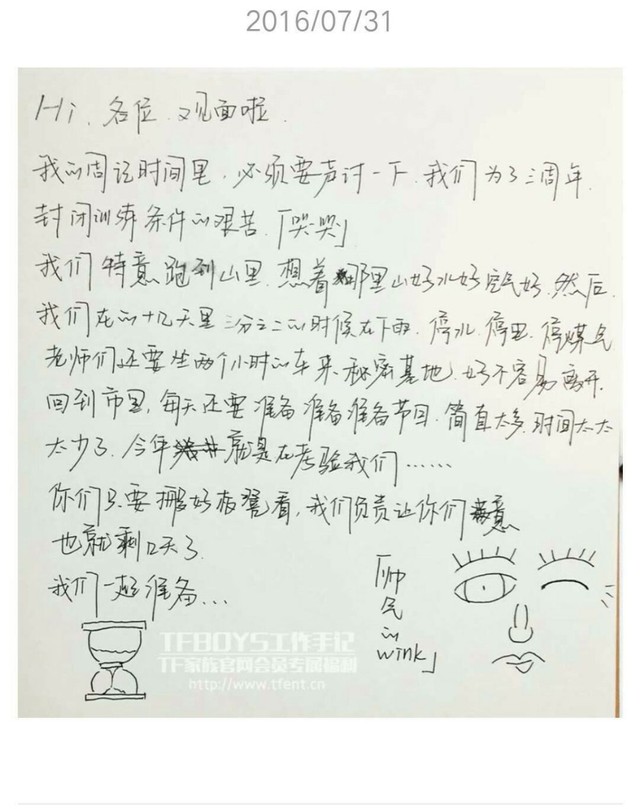 2016/07/31
Hi. 各位. 又见面啦.
我的周记时间里, 必须要声讨一下. 我们为了三周年.
封闭训练条件的艰苦.「哭哭」
我们特意跑到山里. 想着那里山好水好空气好. 然后.
我们在的十几天里 三分之二的时候在下雨. 停水. 停电. 停煤气
老师们还要坐两个小时的车来. 秘密基地. 好不容易离开.
回到市里, 每天还要准备 准备 准备节目. 简直太多. 时间太太
太少了. 今年就是在考验我们......
你们只要挪好板凳看, 我们负责让你们满意
也就剩天了.
我们一起准备...
「帅
气
的
wink」
TFBOYS工作手记
TF家族官网会员专属福利
http://www.tfent.cn